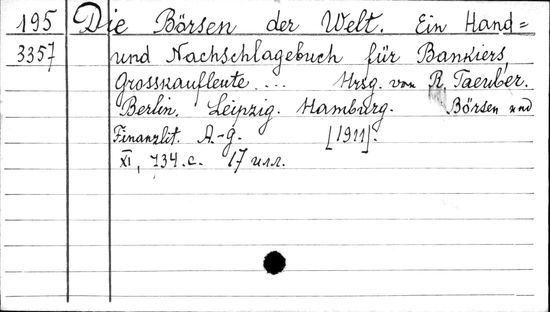 195 Die Börsen der Welt. Ein Hand=
3357 und Nachschlagebuch für Bankiers,
Grosskaufleute ... Hrsg. von R. Taeuber.
Berlin, Leipzig. Hamburg. Börsen und
Finanzlit. A.-g. [1911].
XI, 734 с. 17 илл.